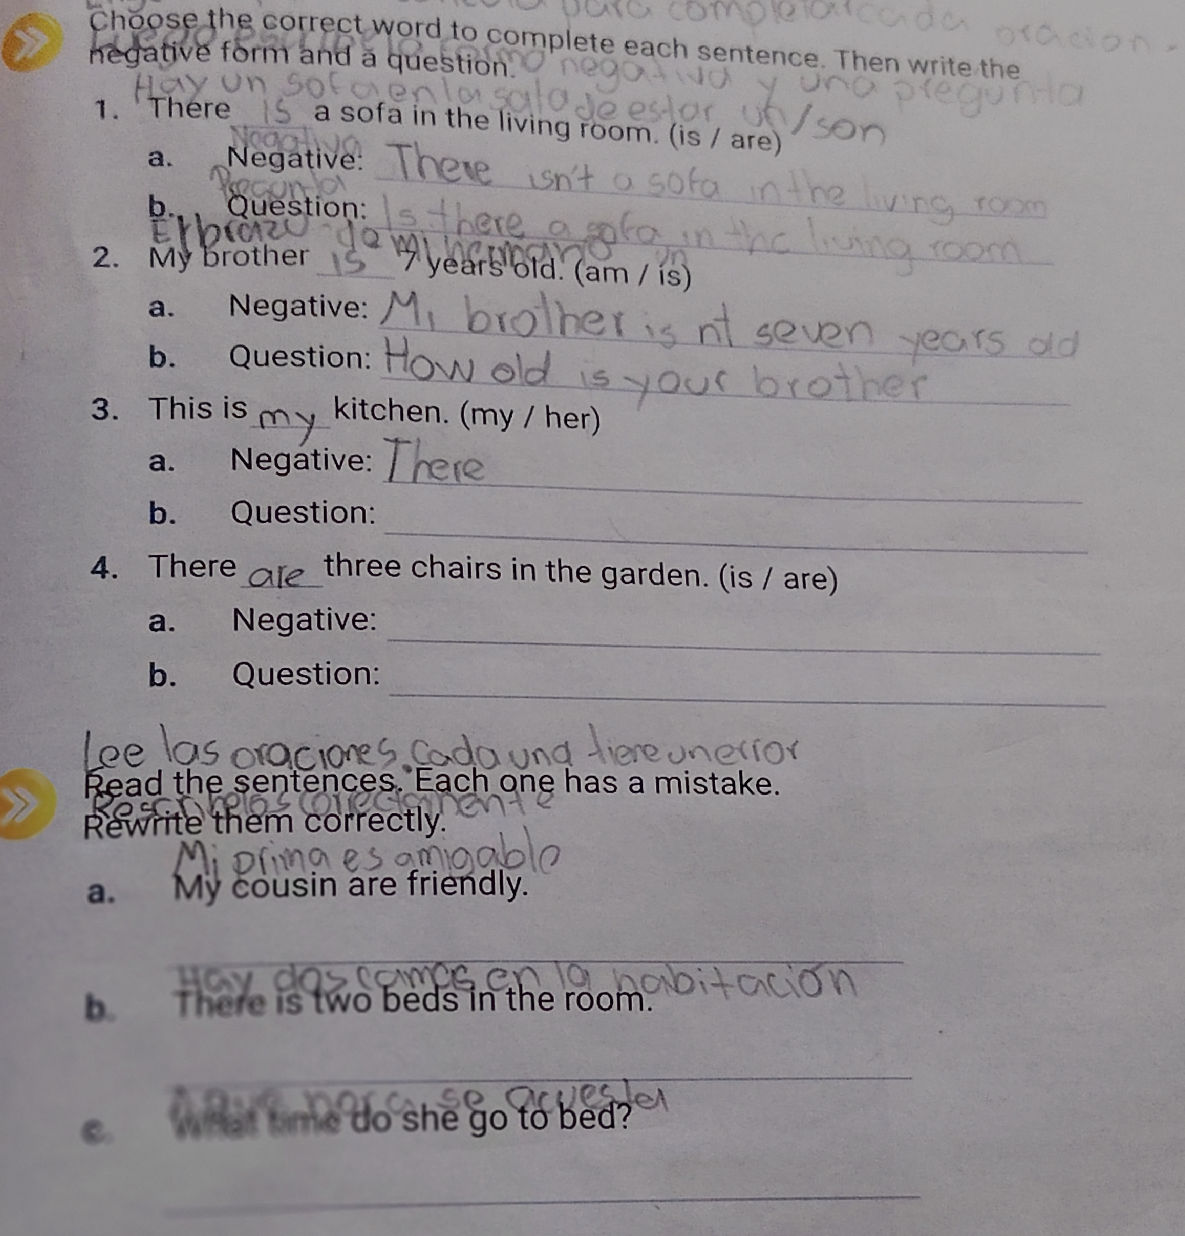 para completar cada oracion.
Choose the correct word to complete each sentence. Then write the
negative form and a question.
negativa y una pregunta
Hay un sofa en la sala de estar un/son
1. There is a sofa in the living room. (is / are)
Negativa
a. Negative: There isn't a sofa in the living room
Pregunta
b. Question: Is there a sofa in the living room
de mi hermano
2. My brother is 7 years old. (am / is)
a. Negative: Mi brother is nt seven years old
b. Question: How old is your brother
3. This is my kitchen. (my / her)
a. Negative: There
b. Question:
4. There are three chairs in the garden. (is / are)
a. Negative:
b. Question:
Lee las oraciones. Cada una tiene un error
Read the sentences. Each one has a mistake.
Rewrite them correctly.
Mi prima es amigable
a. My cousin are friendly.
Hay dos camas en la habitación
b. There is two beds in the room.
se acuesta
c. What time do she go to bed?